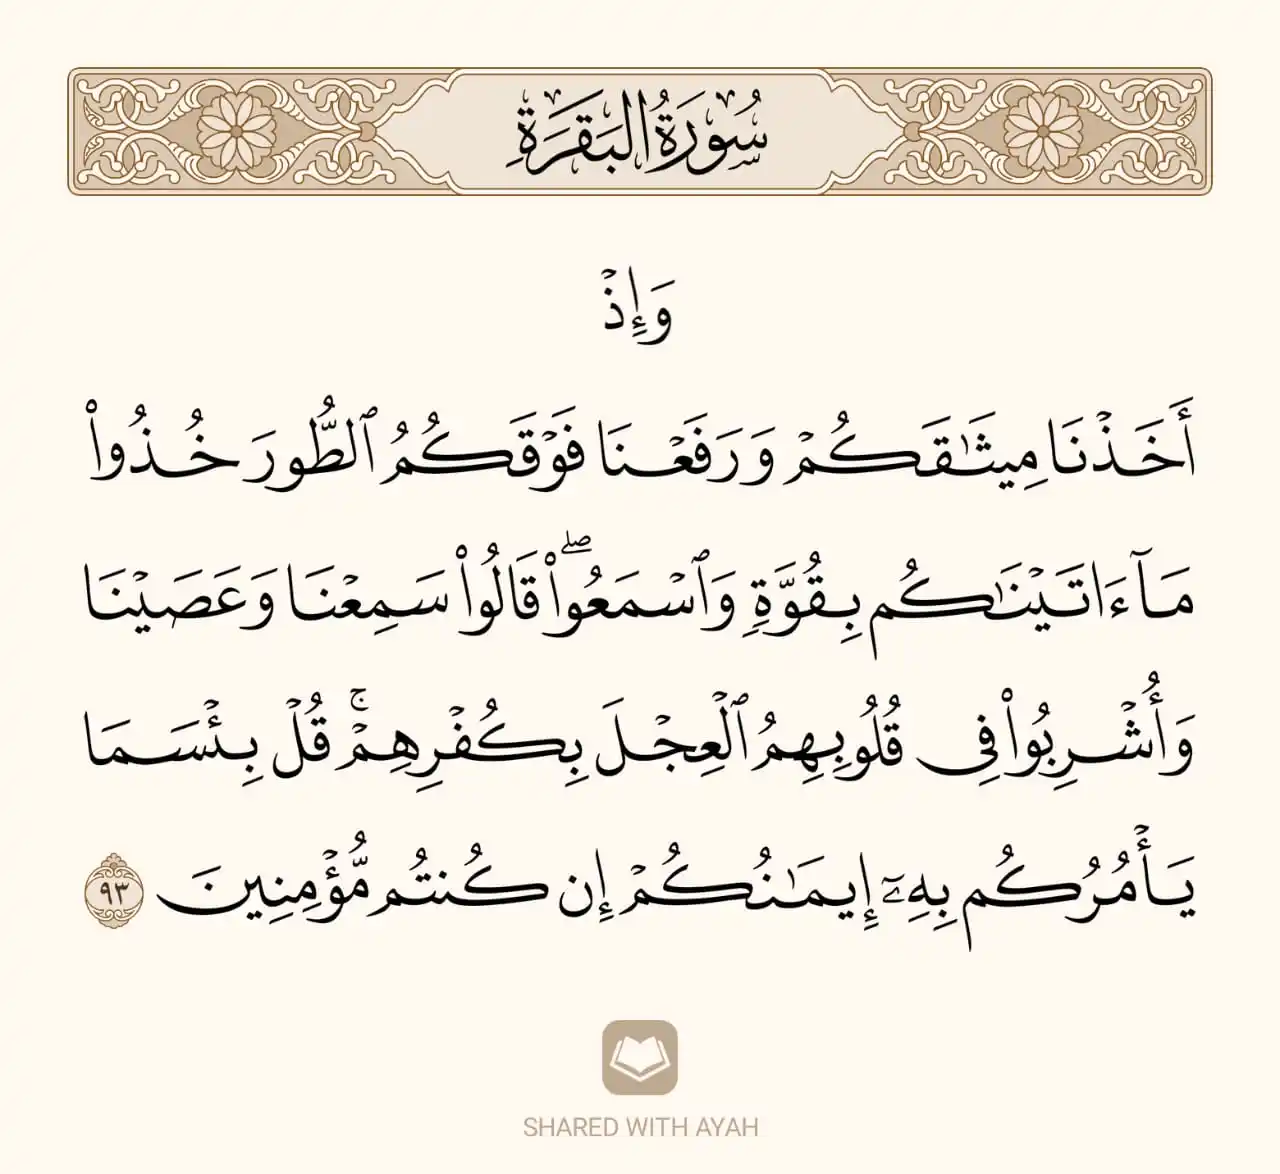 سُورَةُ البَقَرَةِ
وَإِذۡ
أَخَذۡنَا مِيثَٰقَكُمۡ وَرَفَعۡنَا فَوۡقَكُمُ ٱلطُّورَ خُذُواْ
مَآ ءَاتَيۡنَٰكُم بِقُوَّةٖ وَٱسۡمَعُواْۖ قَالُواْ سَمِعۡنَا وَعَصَيۡنَا
وَأُشۡرِبُواْ فِي قُلُوبِهِمُ ٱلۡعِجۡلَ بِكُفۡرِهِمۡۚ قُلۡ بِئۡسَمَا
يَأۡمُرُكُم بِهِۦٓ إِيمَٰنُكُمۡ إِن كُنتُم مُّؤۡمِنِينَ ٩٣
SHARED WITH AYAH